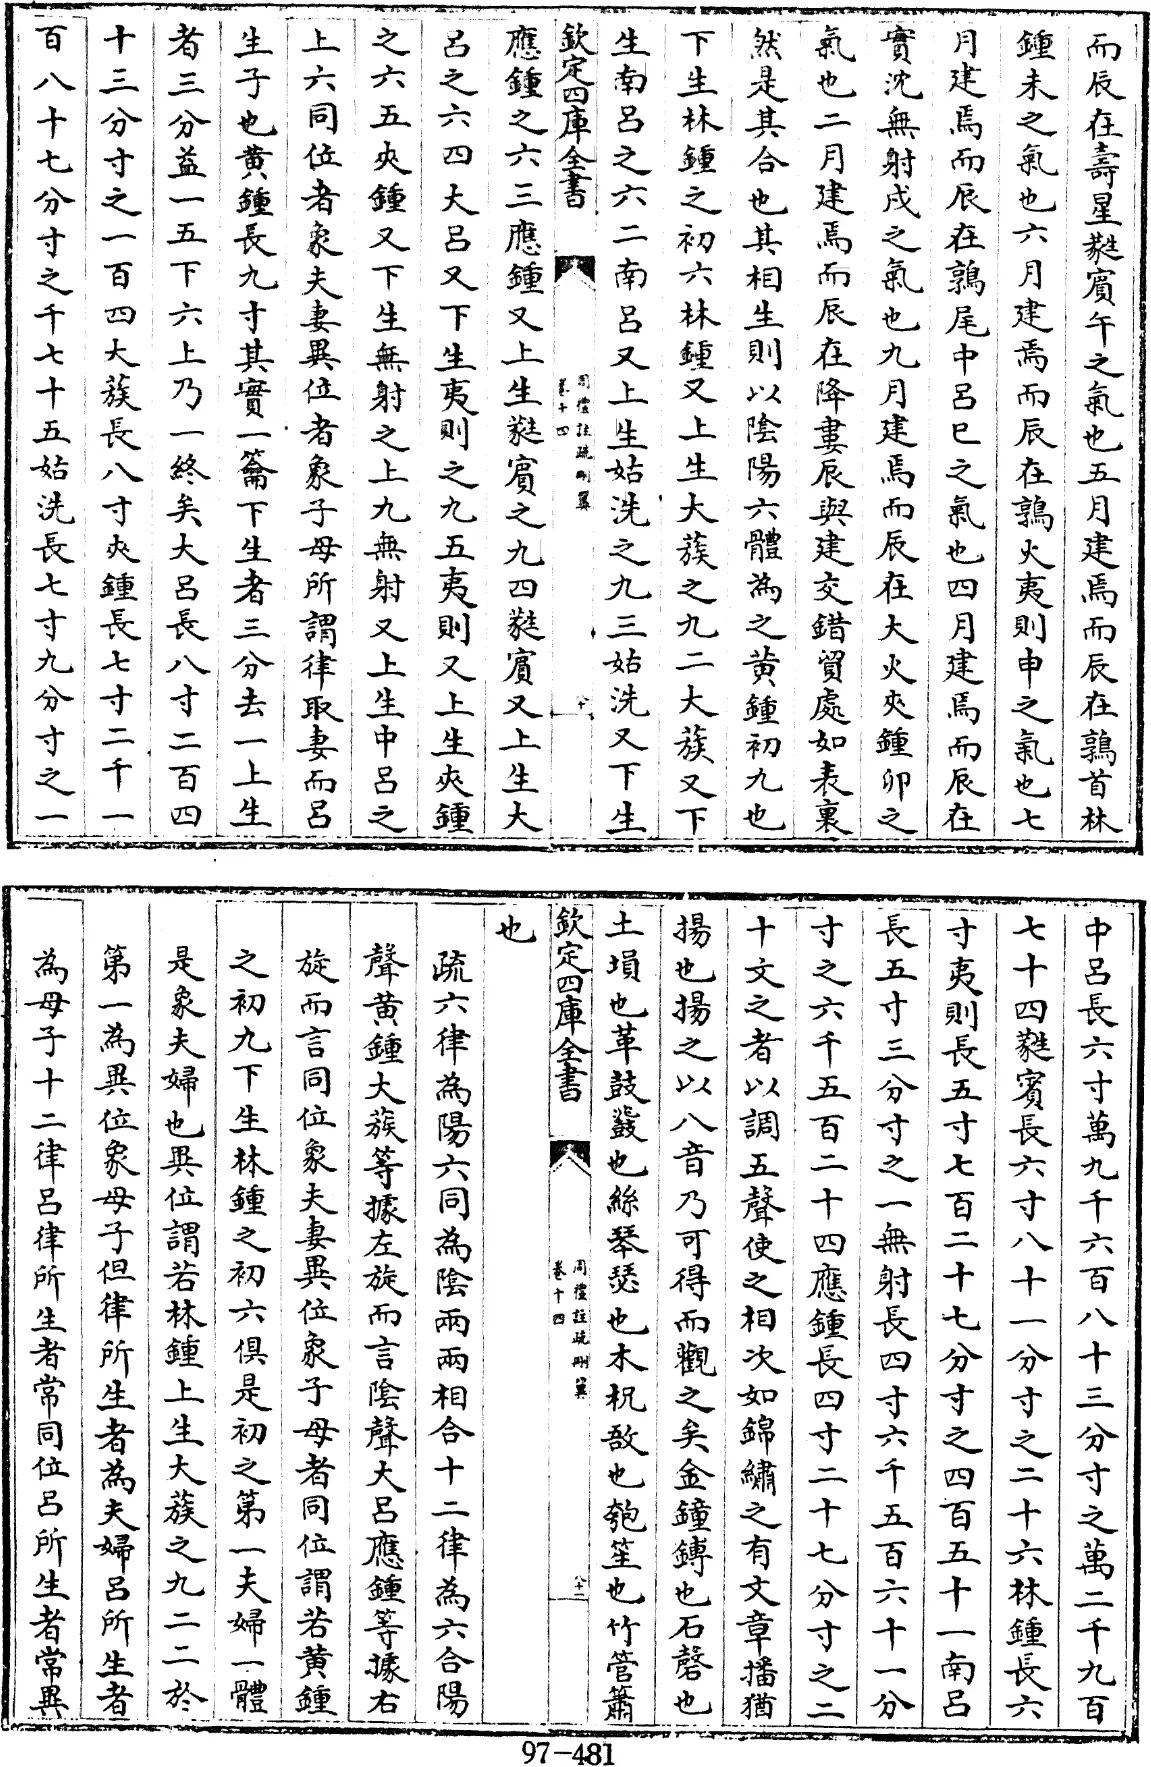 而辰在壽星蕤賓午之氣也五月建焉而辰在鶉首林
鍾未之氣也六月建焉而辰在鶉火夷則申之氣也七
月建焉而辰在鶉尾中呂巳之氣也四月建焉而辰在
實沈無射戌之氣也九月建焉而辰在大火夾鍾卯之
氣也二月建焉而辰在降婁辰與建交錯貿處如表裏
然是其合也其相生則以陰陽六體為之黄鍾初九也
下生林鍾之初六林鍾又上生大蔟之九二大蔟又下
生南呂之六二南呂又上生姑洗之九三姑洗又下生
欽定四庫全書
周禮註疏刪翼
卷十四
十
應鍾之六三應鍾又上生蕤賓之九四蕤賓又上生大
呂之六四大呂又下生夷則之九五夷則又上生夾鍾
之六五夾鍾又下生無射之上九無射又上生中呂之
上六同位者象夫妻異位者象子母所謂律取妻而呂
生子也黄鍾長九寸其實一籥下生者三分去一上生
者三分益一五下六上乃一終矣大呂長八寸二百四
十三分寸之一百四大蔟長八寸夾鍾長七寸二千一
百八十七分寸之千七十五姑洗長七寸九分寸之一
中呂長六寸萬九千六百八十三分寸之萬二千九百
七十四蕤賓長六寸八十一分寸之二十六林鍾長六
寸夷則長五寸七百二十七分寸之四百五十一南呂
長五寸三分寸之一無射長四寸六千五百六十一分
寸之六千五百二十四應鍾長四寸二十七分寸之二
十文之者以調五聲使之相次如錦繡之有文章播猶
揚也揚之以八音乃可得而觀之矣金鐘鎛也石磬也
土塤也革鼓鼗也絲琴瑟也木柷敔也匏笙也竹管簫
欽定四庫全書
周禮註疏刪翼
卷十四
八十二
也
疏六律為陽六同為陰兩兩相合十二律為六合陽
聲黄鍾大蔟等據左旋而言陰聲大呂應鍾等據右
旋而言同位象夫妻異位象子母者同位謂若黄鍾
之初九下生林鍾之初六俱是初之第一夫婦一體
是象夫婦也異位謂若林鍾上生大蔟之九二二於
第一為異位象母子但律所生者為夫婦呂所生者
為母子十二律呂律所生者常同位呂所生者常異
97-481